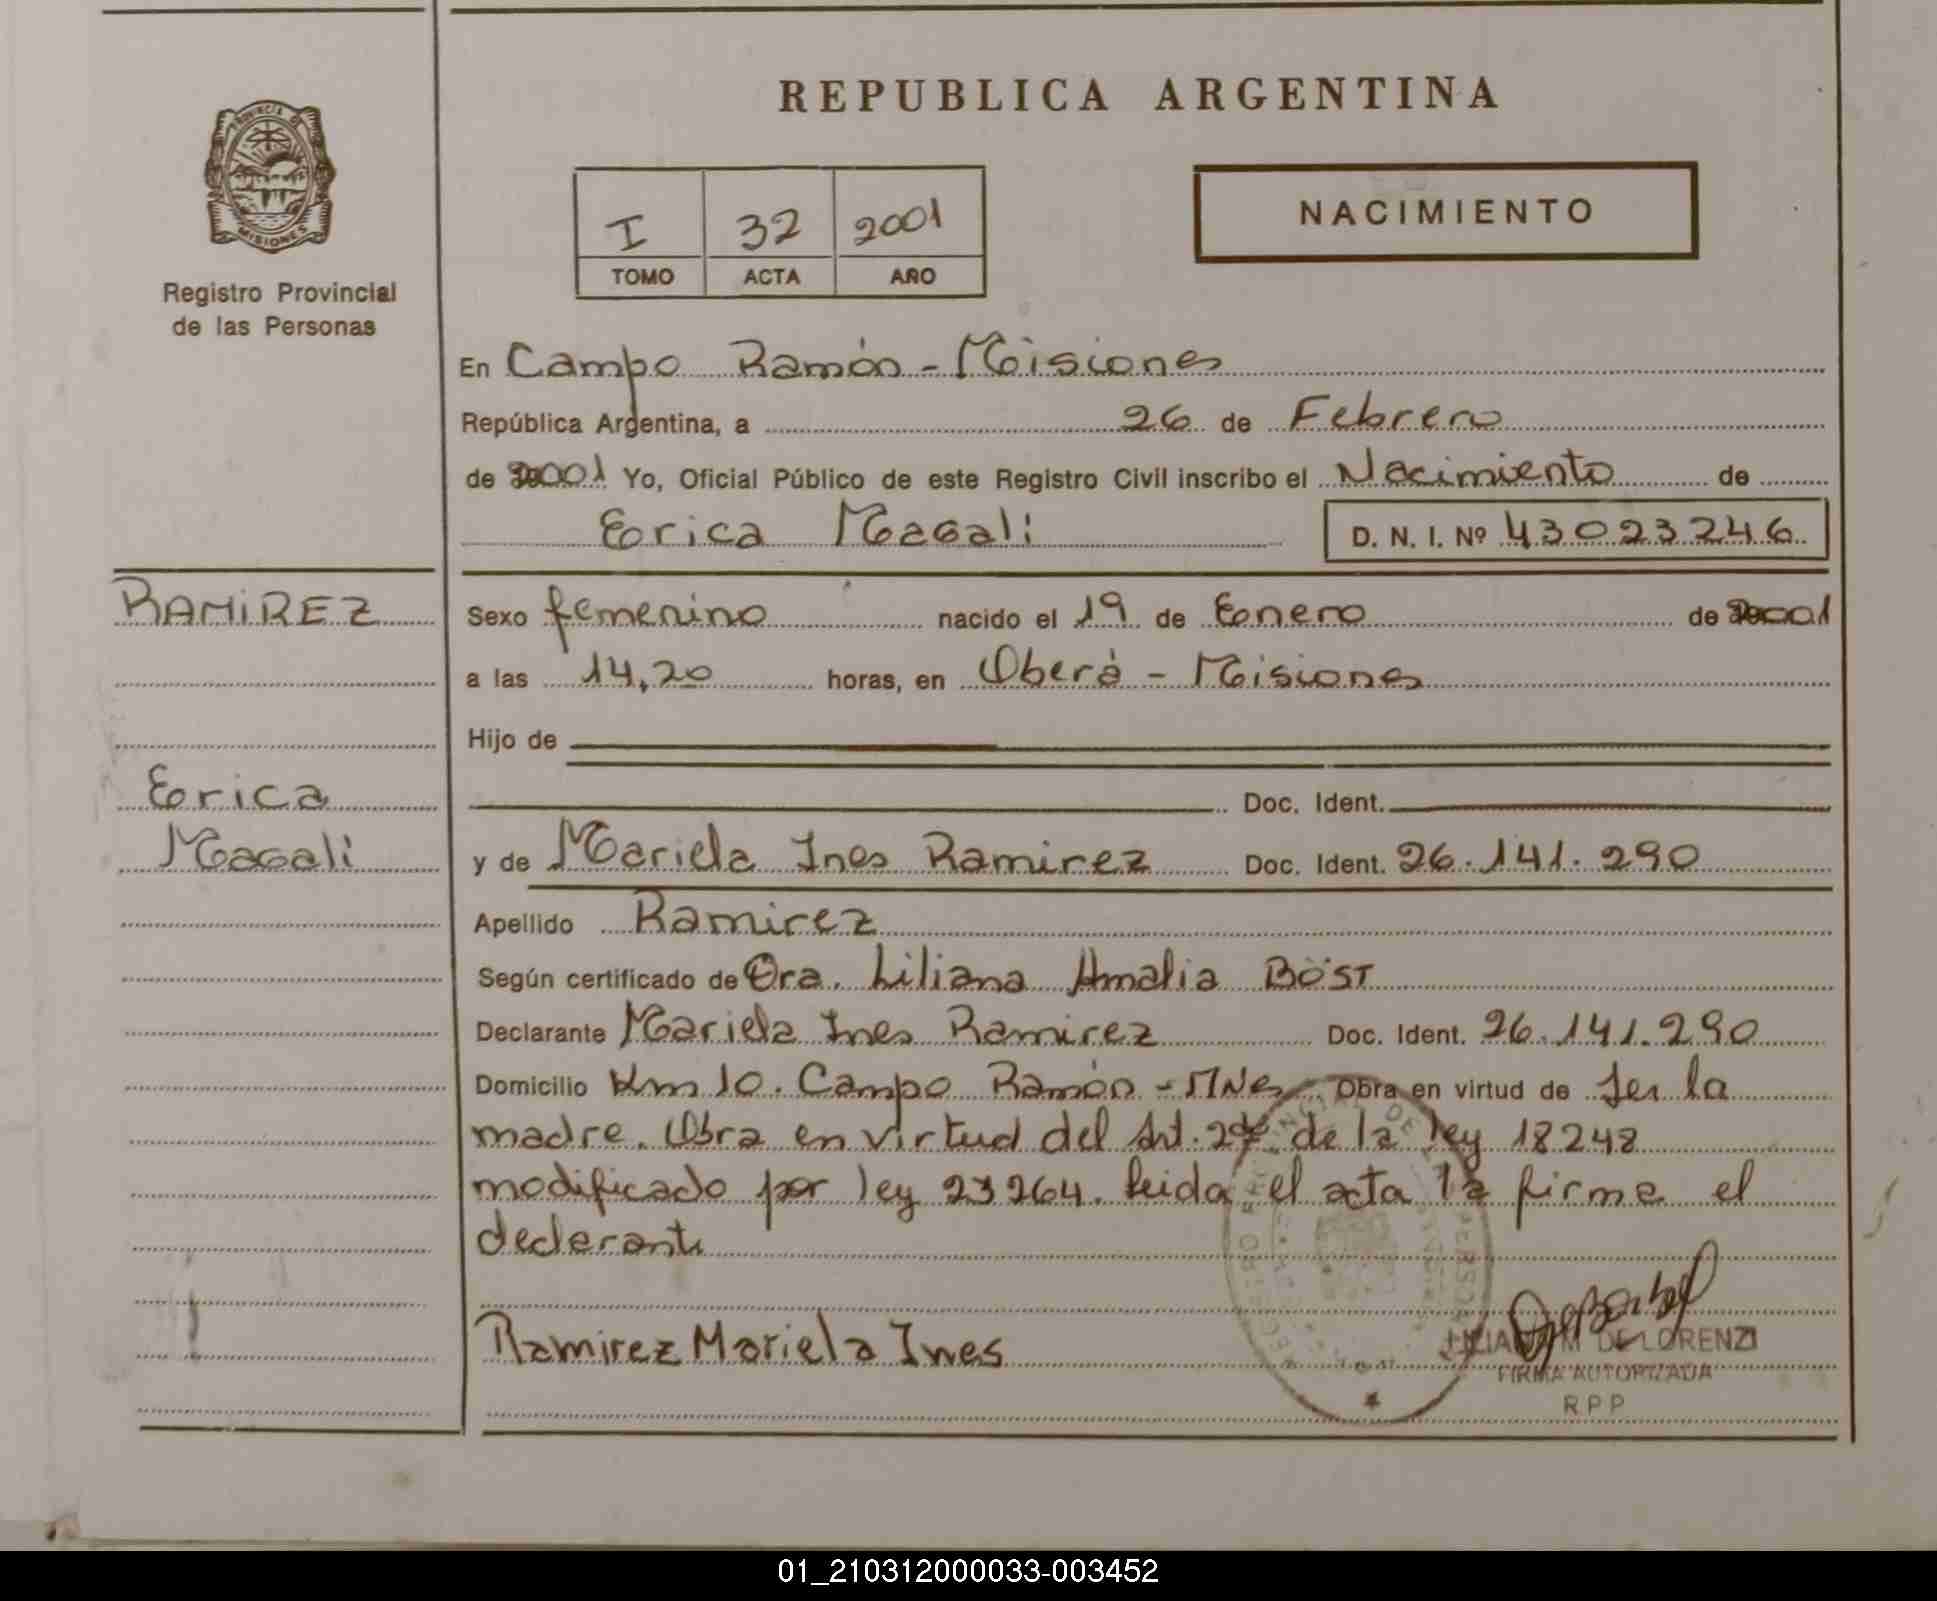 REPUBLICA ARGENTINA
PROVINCIA DE
MISIONES
Registro Provincial
de las Personas
I 32 2001
TOMO ACTA AÑO
NACIMIENTO
En Campo Ramón - Misiones
República Argentina, a 26 de Febrero
de 2001 Yo, Oficial Público de este Registro Civil inscribo el Nacimiento de
Erica Magali D. N. I. Nº 43023246
RAMIREZ
Erica
Magali
Sexo femenino nacido el 19 de Enero de 2001
a las 14,20 horas, en Oberá - Misiones
Hijo de
Doc. Ident.
y de Mariela Ines Ramirez Doc. Ident. 26.141.290
Apellido Ramirez
Según certificado de Dra. Liliana Amalia BÖST
Declarante Mariela Ines Ramirez Doc. Ident. 26.141.290
Domicilio Km 10. Campo Ramón - MNes Obra en virtud de ser la
madre. Obra en virtud del Art. de la ley 18248
modificado por ley 23264. Leida el acta la firma el
declarante
Ramirez Mariela Ines
M DE LORENZI
FIRMA AUTORIZADA
RPP
01_210312000033-003452